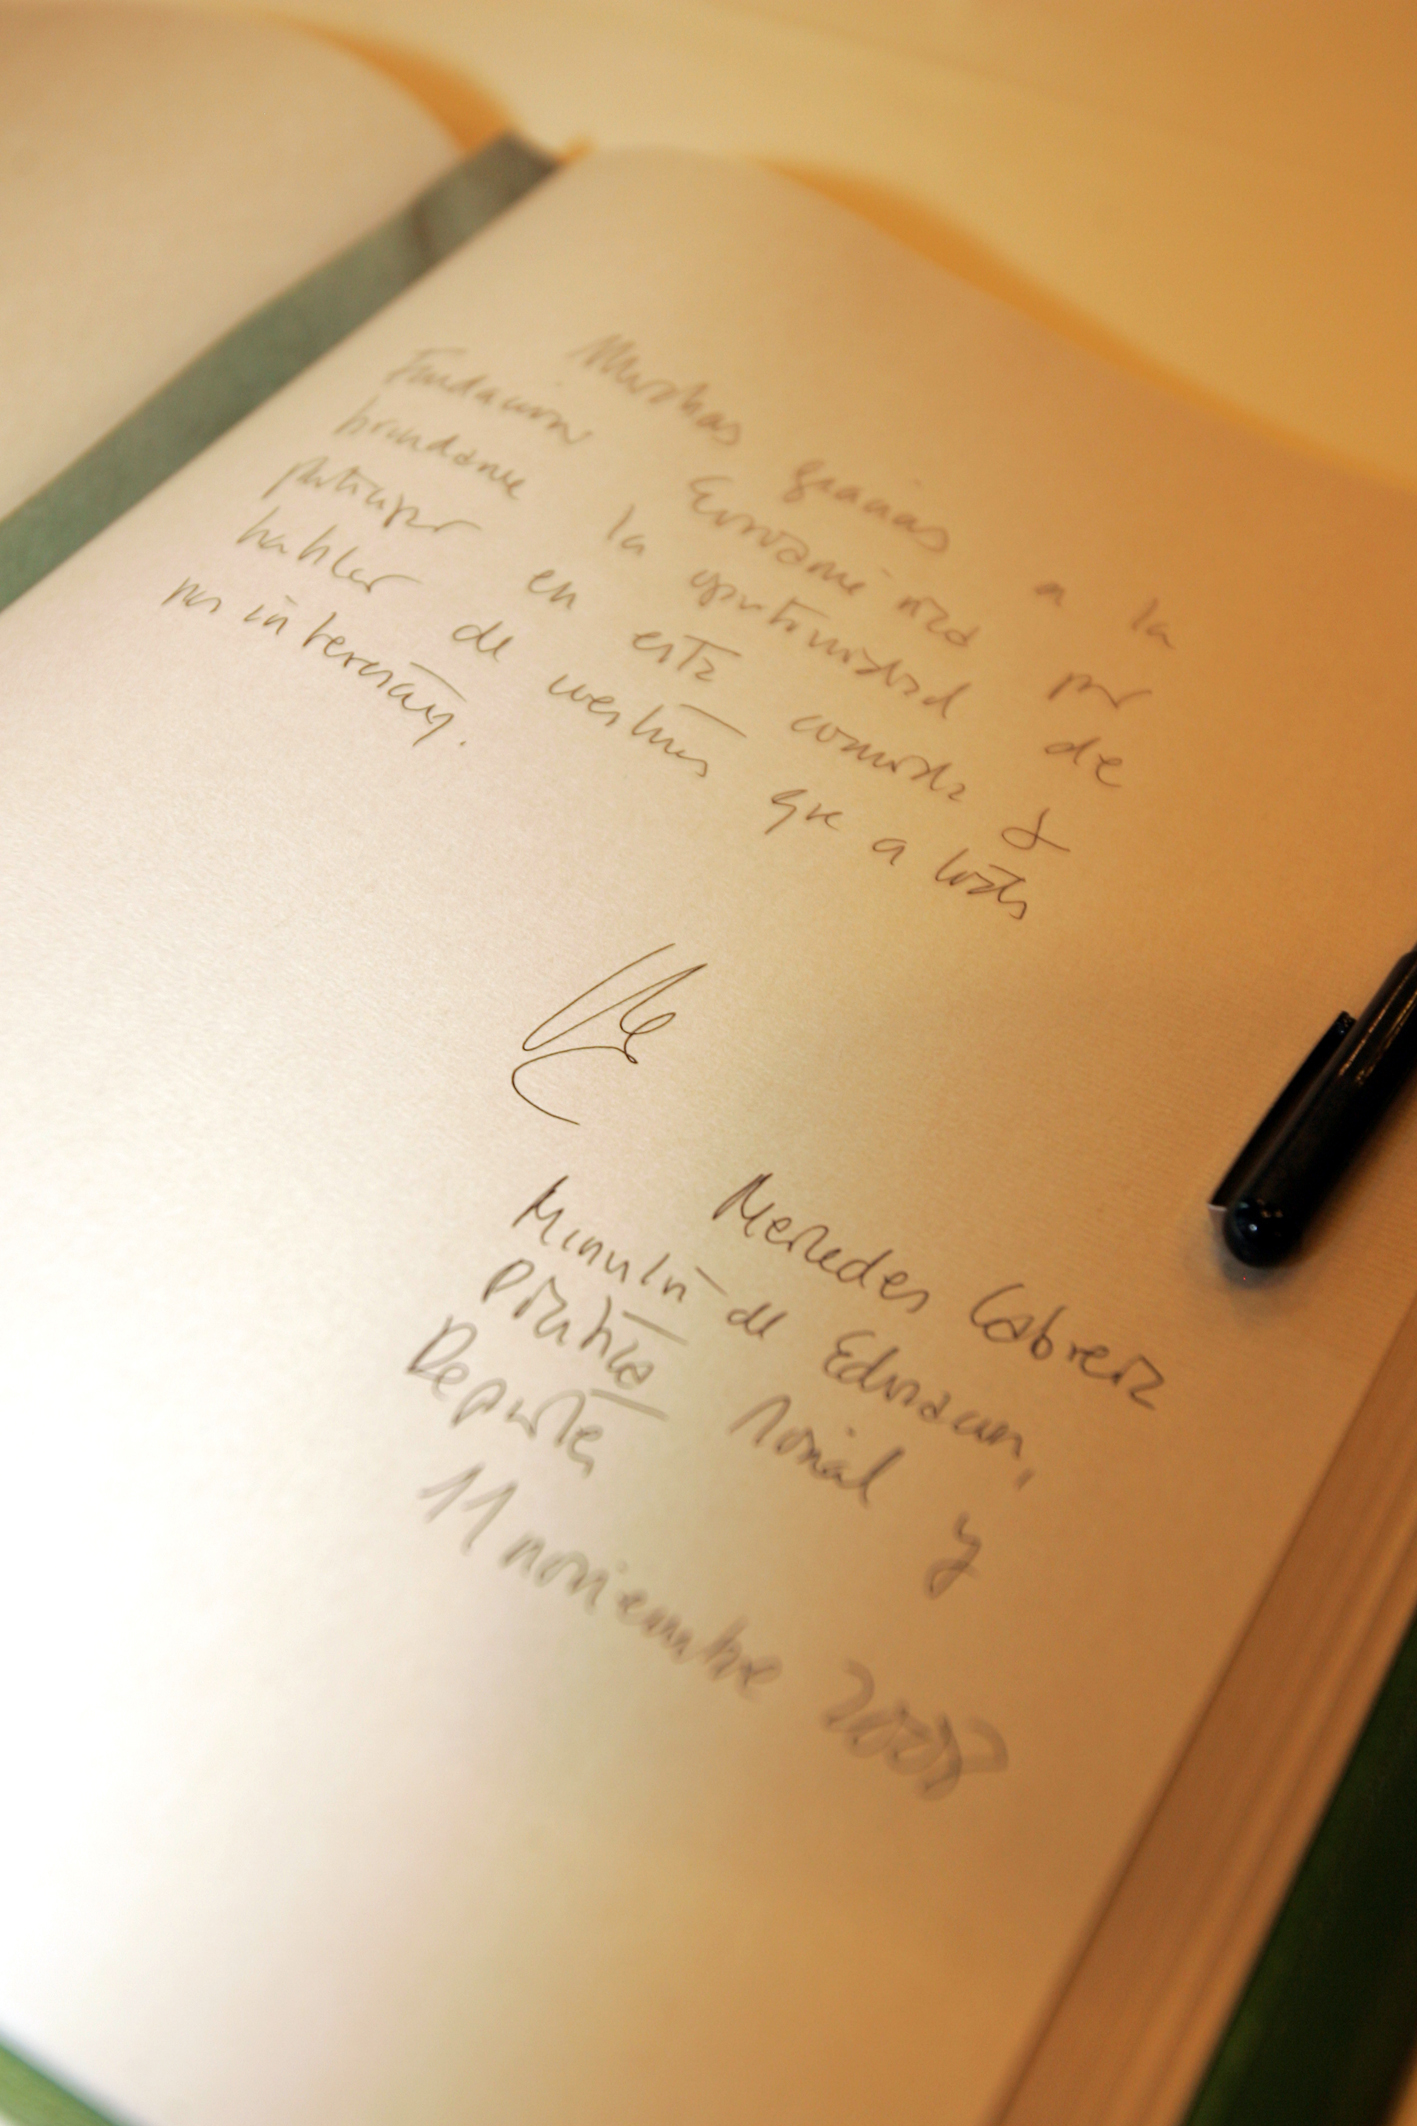 Muchas gracias a la
Fundación Euroamérica por
brindarme la oportunidad de
participar en esta comida y
hablar de cuestiones que a todos
nos interesan.
Mercedes Cabrera
Ministra de Educación,
Política Social y
Deporte
11 noviembre 2008